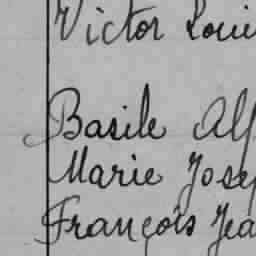 Victor Loui
Basile Alf
Marie Jose
François Jea